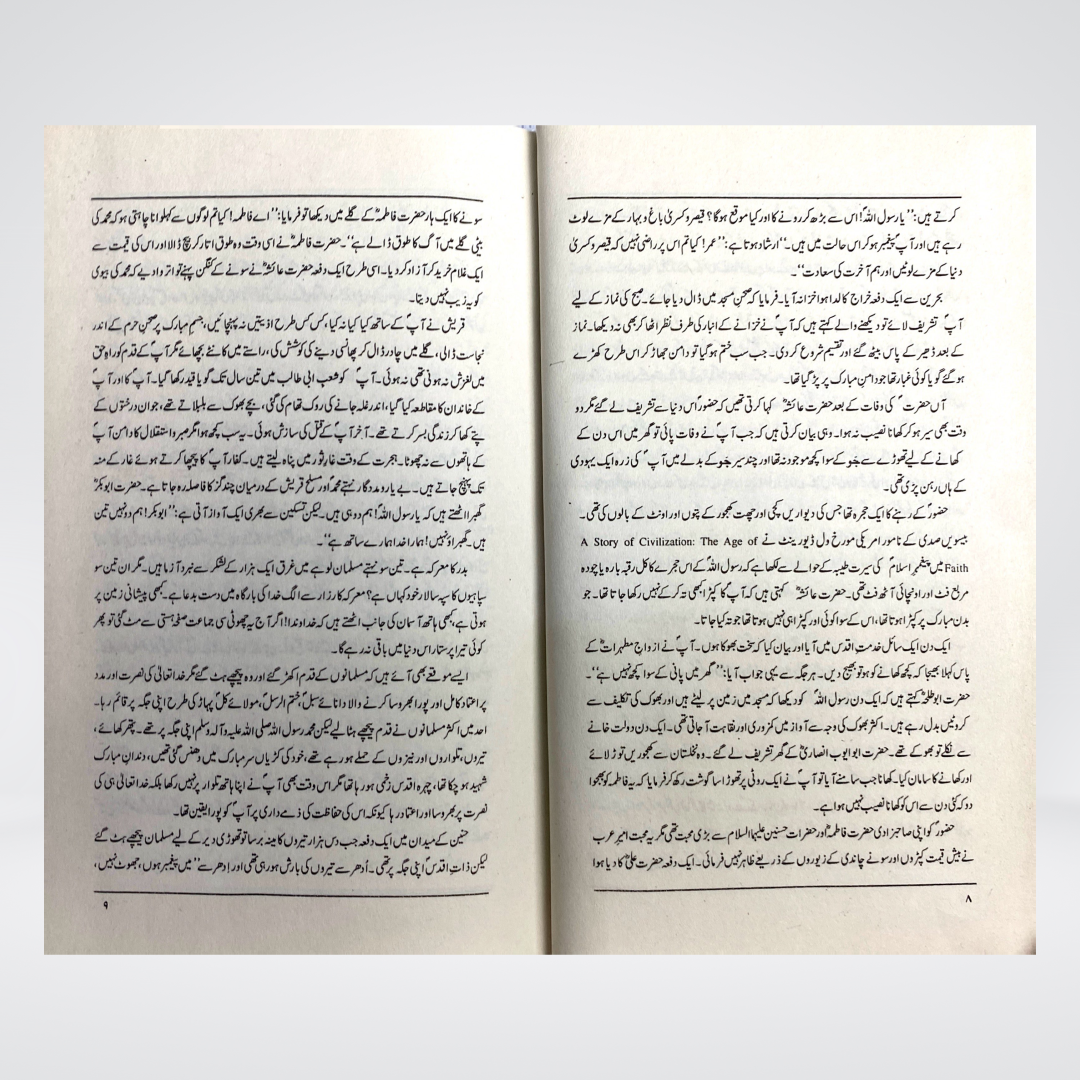 کرتے ہیں: ’’یا رسول اللہؐ! اس سے بڑھ کر رونے کا اور کیا موقع ہوگا؟ قیصر و کسریٰ باغ و بہار کے مزے لوٹ
رہے ہیں اور آپؐ پیغمبر ہو کر اس حالت میں ہیں۔‘‘ ارشاد ہوتا ہے: ’’عمر! کیا تم اس پر راضی نہیں کہ قیصر و کسریٰ
دنیا کے مزے لوٹیں اور ہم آخرت کی سعادت‘‘۔
بحرین سے ایک دفعہ خراج کا لدا ہوا خزانہ آیا۔ فرمایا کہ صحنِ مسجد میں ڈال دیا جائے۔ صبح کی نماز کے لیے
آپؐ تشریف لائے تو دیکھنے والے کہتے ہیں کہ آپؐ نے خزانے کے انبار کی طرف نظر اٹھا کر بھی نہ دیکھا۔ نماز
کے بعد ڈھیر کے پاس بیٹھ گئے اور تقسیم شروع کر دی۔ جب سب ختم ہو گیا تو دامن جھاڑ کر اس طرح کھڑے
ہو گئے گویا کوئی غبار تھا جو دامنِ مبارک پر پڑ گیا تھا۔
آں حضرتؐ کی وفات کے بعد حضرت عائشہؓ کہا کرتی تھیں کہ حضورؐ اس دنیا سے تشریف لے گئے مگر دو
وقت بھی سیر ہو کر کھانا نصیب نہ ہوا۔ وہی بیان کرتی ہیں کہ جب آپؐ نے وفات پائی تو گھر میں اس دن کے
کھانے کے لیے تھوڑے سے جَو کے سوا کچھ موجود نہ تھا اور چند سیر جَو کے بدلے میں آپؐ کی زرہ ایک یہودی
کے ہاں رہن پڑی تھی۔
حضورؐ کے رہنے کا ایک حجرہ تھا جس کی دیواریں کچی اور چھت کھجور کے پتوں اور اونٹ کے بالوں کی تھی۔
بیسویں صدی کے نامور امریکی مورخ ول ڈیورینٹ نے A Story of Civilization: The Age of
Faith میں پیغمبرِ اسلامؐ کی سیرت طیبہ کے حوالے سے لکھا ہے کہ رسول اللہؐ کے اس حجرے کا کل رقبہ بارہ یا چودہ
مربع فٹ اور اونچائی آٹھ فٹ تھی۔ حضرت عائشہؓ کہتی ہیں کہ آپؐ کا کپڑا کبھی تہ کر کے نہیں رکھا جاتا تھا۔ جو
بدن مبارک پر کپڑا ہوتا تھا، اس کے سوا کوئی اور کپڑا ہی نہیں ہوتا تھا جو تہ کیا جاتا۔
ایک دن ایک سائل خدمتِ اقدس میں آیا اور بیان کیا کہ سخت بھوکا ہوں۔ آپؐ نے ازواجِ مطہرات کے
پاس کہلا بھیجا کہ کچھ کھانے کو ہو تو بھیج دیں۔ ہر جگہ سے یہی جواب آیا: ’’گھر میں پانی کے سوا کچھ نہیں ہے‘‘۔
حضرت ابوطلحہؓ کہتے ہیں کہ ایک دن رسول اللہؐ کو دیکھا کہ مسجد میں زمین پر لیٹے ہیں اور بھوک کی تکلیف سے
کروٹیں بدل رہے ہیں۔ اکثر بھوک کی وجہ سے آواز میں کمزوری اور نقاہت آ جاتی تھی۔ ایک دن دولت خانے
سے نکلے تو بھوکے تھے۔ حضرت ابو ایوب انصاریؓ کے گھر تشریف لے گئے۔ وہ نخلستان سے کھجوریں توڑ لائے
اور کھانے کا سامان کیا۔ کھانا جب سامنے آیا تو آپؐ نے ایک روٹی پر تھوڑا سا گوشت رکھ کر فرمایا کہ یہ فاطمہؓ کو بھجوا
دو کہ کئی دن سے اس کو کھانا نصیب نہیں ہوا ہے۔
حضورؐ کو اپنی صاحبزادی حضرت فاطمہؓ اور حضرات حسنین علیہما السلام سے بڑی محبت تھی مگر یہ محبت امیرِ عرب
نے بیش قیمت کپڑوں اور سونے چاندی کے زیوروں کے ذریعے ظاہر نہیں فرمائی۔ ایک دفعہ حضرت علیؓ کا دیا ہوا
۸
سونے کا ایک ہار حضرت فاطمہؓ کے گلے میں دیکھا تو فرمایا: ’’اے فاطمہ! کیا تم لوگوں سے کہلوانا چاہتی ہو کہ محمدؐ کی
بیٹی گلے میں آگ کا طوق ڈالے ہے‘‘۔ حضرت فاطمہؓ نے اسی وقت وہ طوق اتار کر بیچ ڈالا اور اس کی قیمت سے
ایک غلام خرید کر آزاد کر دیا۔ اسی طرح ایک دفعہ حضرت عائشہؓ نے سونے کے کنگن پہنے تو اتروا دیے کہ محمدؐ کی بیوی
کو یہ زیب نہیں دیتا۔
قریش نے آپؐ کے ساتھ کیا کیا نہ کیا، کس کس طرح اذیتیں نہ پہنچائیں، جسمِ مبارک پر صحنِ حرم کے اندر
نجاست ڈالی، گلے میں چادر ڈال کر پھانسی دینے کی کوشش کی، راستے میں کانٹے بچھائے مگر آپؐ کے قدم کو راہِ حق
میں لغزش نہ ہونی تھی نہ ہوئی۔ آپؐ کو شعب ابی طالب میں تین سال تک گویا قید رکھا گیا۔ آپؐ کا اور آپؐ
کے خاندان کا مقاطعہ کیا گیا، اندر غلہ جانے کی روک تھام کی گئی، بچے بھوک سے بلبلاتے تھے، جوان درختوں کے
پتے کھا کر زندگی بسر کرتے تھے۔ آخر آپؐ کے قتل کی سازش ہوئی۔ یہ سب کچھ ہوا مگر صبر و استقلال کا دامن آپؐ
کے ہاتھوں سے نہ چھوٹا۔ ہجرت کے وقت غارِ ثور میں پناہ لیتے ہیں۔ کفار آپؐ کا پیچھا کرتے ہوئے غار کے منہ
تک پہنچ جاتے ہیں۔ بے یار و مددگار نہتے محمدؐ اور مسلح قریش کے درمیان چند گز کا فاصلہ رہ جاتا ہے۔ حضرت ابوبکرؓ
گھبرا اٹھتے ہیں کہ یا رسول اللہؐ! ہم دو ہی ہیں۔ لیکن تسکین سے بھری ایک آواز آتی ہے: ’’ابوبکر! ہم دو نہیں تین
ہیں۔ گھبراؤ نہیں! ہمارا خدا ہمارے ساتھ ہے‘‘۔
بدر کا معرکہ ہے۔ تین سو نہتے مسلمان لوہے میں غرق ایک ہزار کے لشکر سے نبرد آزما ہیں۔ مگر ان تین سو
سپاہیوں کا سپہ سالار خود کہاں ہے؟ معرکہ کارزار سے الگ خدا کی بارگاہ میں دست بدعا ہے۔ کبھی پیشانی زمین پر
ہوتی ہے، کبھی ہاتھ آسمان کی جانب اٹھتے ہیں کہ خداوندا! اگر آج یہ چھوٹی سی جماعت صفحۂ ہستی سے مٹ گئی تو پھر
کوئی تیرا پرستار اس دنیا میں باقی نہ رہے گا۔
ایسے موقعے بھی آئے ہیں کہ مسلمانوں کے قدم اکھڑ گئے اور وہ پیچھے ہٹ گئے مگر خدا تعالیٰ کی نصرت اور مدد
پر اعتماد کامل اور پورا بھروسا کرنے والا دانائے سبلؐ، ختم الرسلؐ، مولائے کلؐ پہاڑ کی طرح اپنی جگہ پر قائم رہا۔
احد میں اکثر مسلمانوں نے قدم پیچھے ہٹا لیے لیکن محمد رسول اللہ صلی اللہ علیہ و آلہ وسلم اپنی جگہ پر تھے۔ پتھر کھائے،
تیروں، تلواروں اور نیزوں کے حملے ہو رہے تھے، خود کی کڑیاں سرِ مبارک میں دھنس گئی تھیں، دندانِ مبارک
شہید ہو چکا تھا، چہرہ اقدس زخمی ہو رہا تھا مگر اس وقت بھی آپؐ نے اپنا ہاتھ تلوار پر نہیں رکھا بلکہ خدا تعالیٰ ہی کی
نصرت پر بھروسا اور اعتماد رہا کیونکہ اس کی حفاظت کی ذمے داری پر آپؐ کو پورا یقین تھا۔
حنین کے میدان میں ایک دفعہ جب دس ہزار تیروں کا مینہ برسا تو تھوڑی دیر کے لیے مسلمان پیچھے ہٹ گئے
لیکن ذاتِ اقدسؐ اپنی جگہ پر تھی۔ اُدھر سے تیروں کی بارش ہو رہی تھی اور اِدھر سے ’’میں پیغمبر ہوں، جھوٹ نہیں،
۹